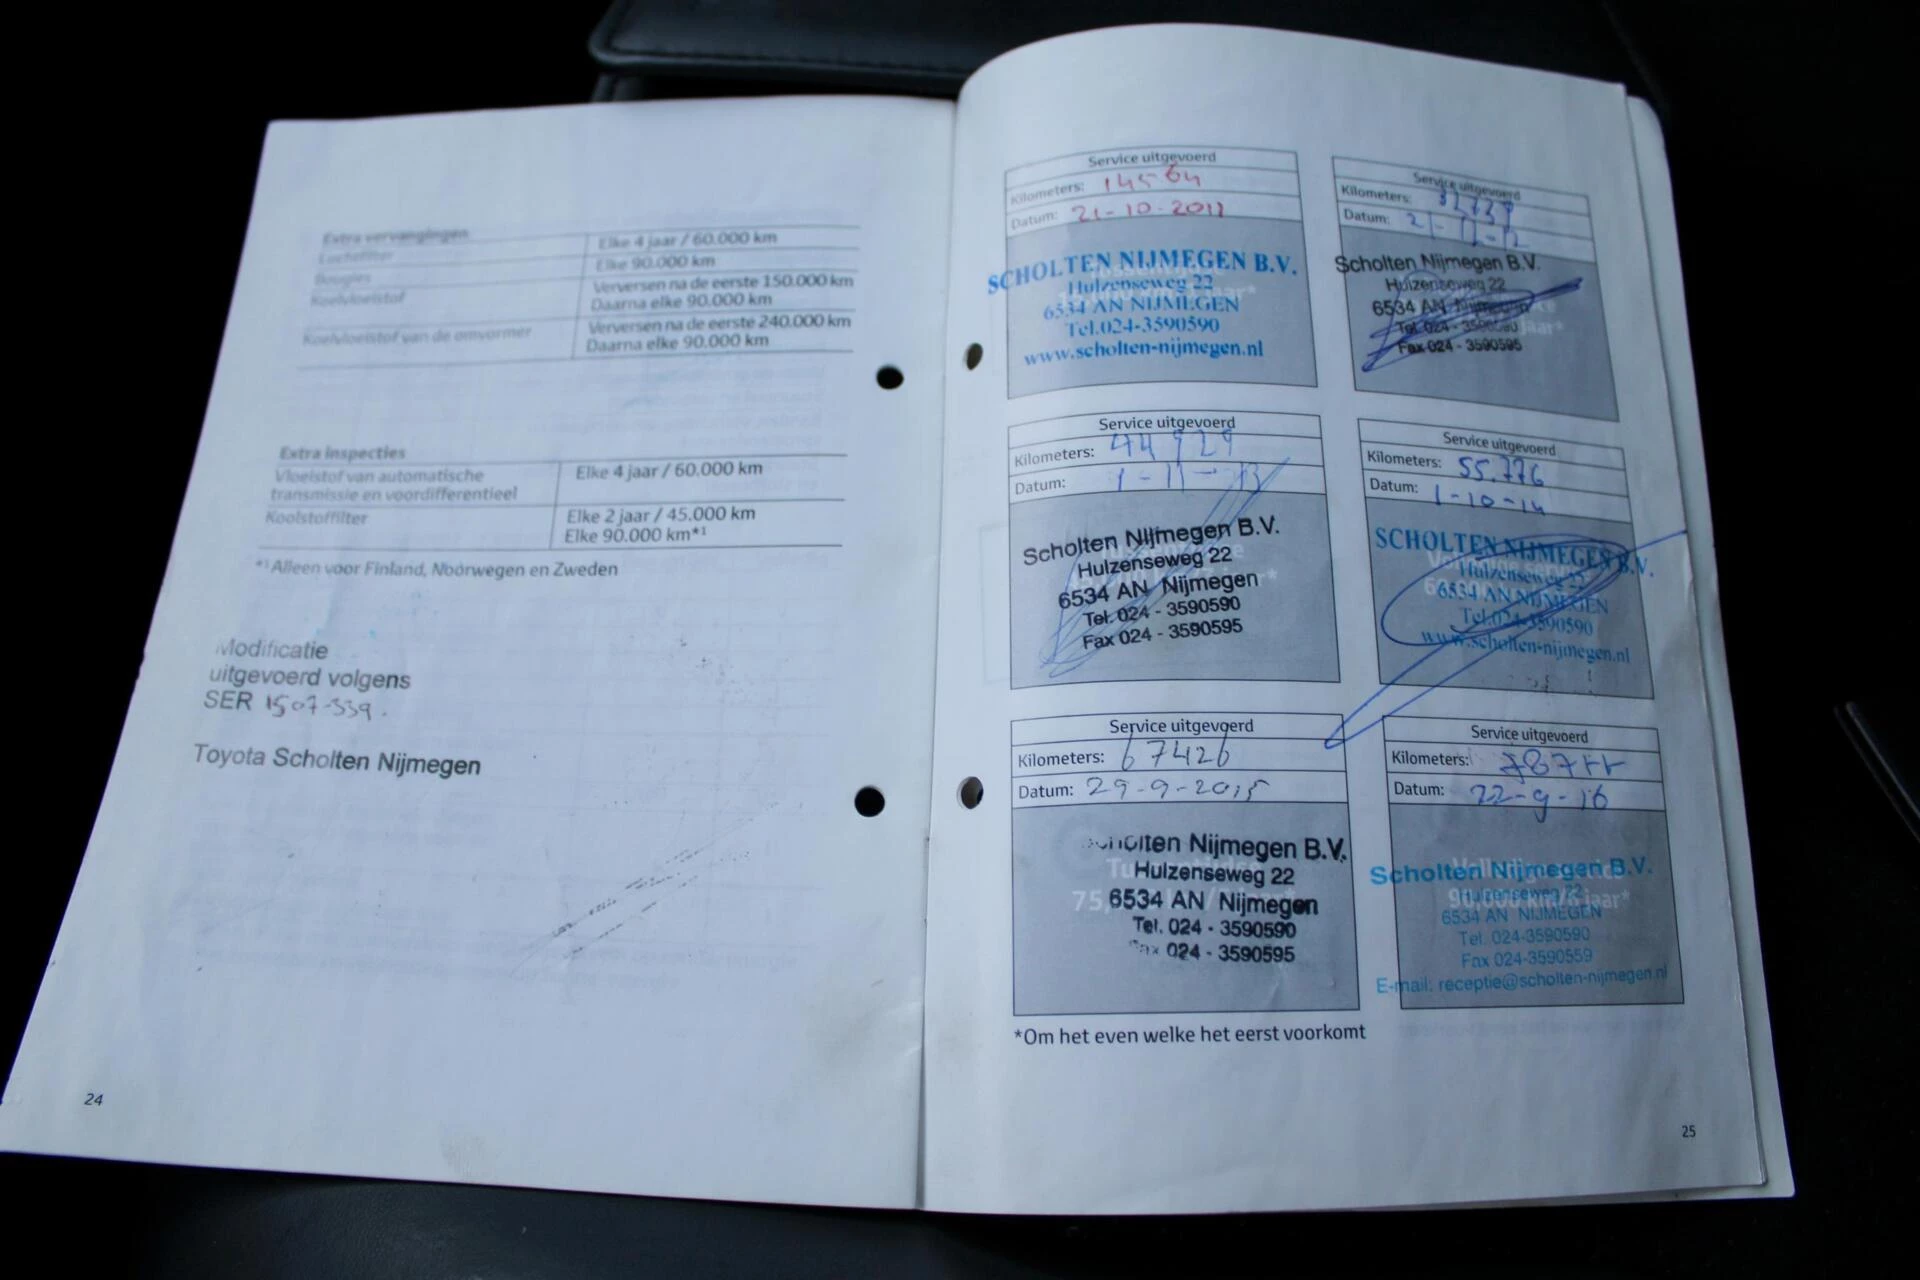 Extra vervangingen
Luchtfilter Elke 4 jaar / 60.000 km
Bougies Elke 90.000 km
Koelvloeistof Verversen na de eerste 150.000 km
Daarna elke 90.000 km
Koelvloeistof van de omvormer Verversen na de eerste 240.000 km
Daarna elke 90.000 km
Extra inspecties
Vloeistof van automatische Elke 4 jaar / 60.000 km
transmissie en voordifferentieel
Koolstoffilter Elke 2 jaar / 45.000 km
Elke 90.000 km*1
*1 Alleen voor Finland, Noorwegen en Zweden
Modificatie
uitgevoerd volgens
SER 1507-339.
Toyota Scholten Nijmegen
24
Service uitgevoerd
Kilometers: 14564
Datum: 21-10-2011
SCHOLTEN NIJMEGEN B.V.
Hulzenseweg 22
6534 AN NIJMEGEN
Tel.024-3590590
www.scholten-nijmegen.nl
Service uitgevoerd
Kilometers:
Datum:
Scholten Nijmegen B.V.
Hulzenseweg 22
6534 AN Nijmegen
Tel. 024 - 3590590
Fax 024 - 3590595
Service uitgevoerd
Kilometers: 44929
Datum: 1-11-13
Scholten Nijmegen B.V.
Hulzenseweg 22
6534 AN Nijmegen
Tel. 024 - 3590590
Fax 024 - 3590595
Service uitgevoerd
Kilometers: 55.776
Datum: 1-10-14
SCHOLTEN NIJMEGEN B.V.
Hulzenseweg 22
6534 AN NIJMEGEN
Tel.024-3590590
www.scholten-nijmegen.nl
Service uitgevoerd
Kilometers: 67426
Datum: 29-9-2015
Scholten Nijmegen B.V.
Hulzenseweg 22
6534 AN Nijmegen
Tel. 024 - 3590590
Fax 024 - 3590595
Service uitgevoerd
Kilometers:
Datum: 22-9-16
Scholten Nijmegen B.V.
Hulzenseweg 22
6534 AN NIJMEGEN
Tel. 024-3590590
Fax 024-3590559
E-mail: receptie@scholten-nijmegen.nl
*Om het even welke het eerst voorkomt
25